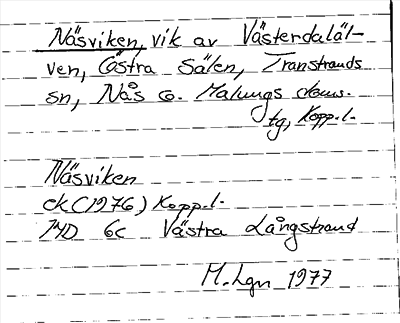 Näsviken, vik av Västerdaläl-
ven, Östra Sälen, Transtrands
sn, Nås o. Malungs doms.
tg, Kopp. l.
Näsviken
ek (1976) Kopp. l.
14D 6c Västra Långstrand
M. Lgn 1977